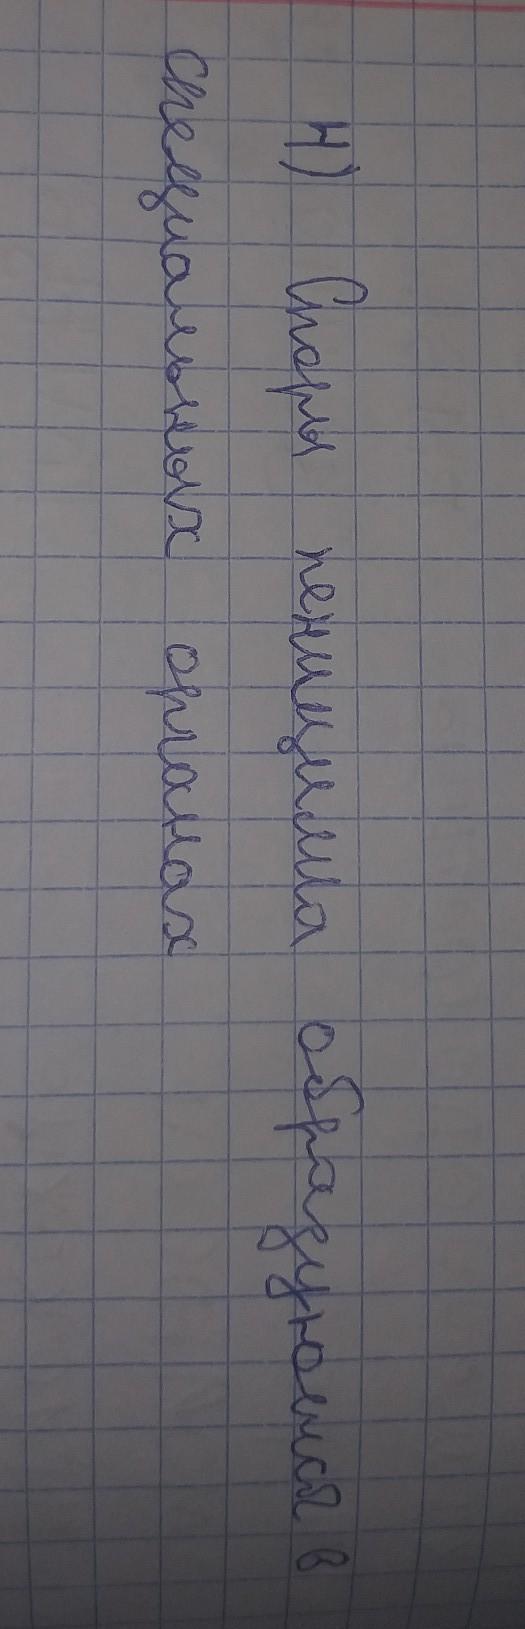 Н) Споры пеницилла образуются в
специальных органах